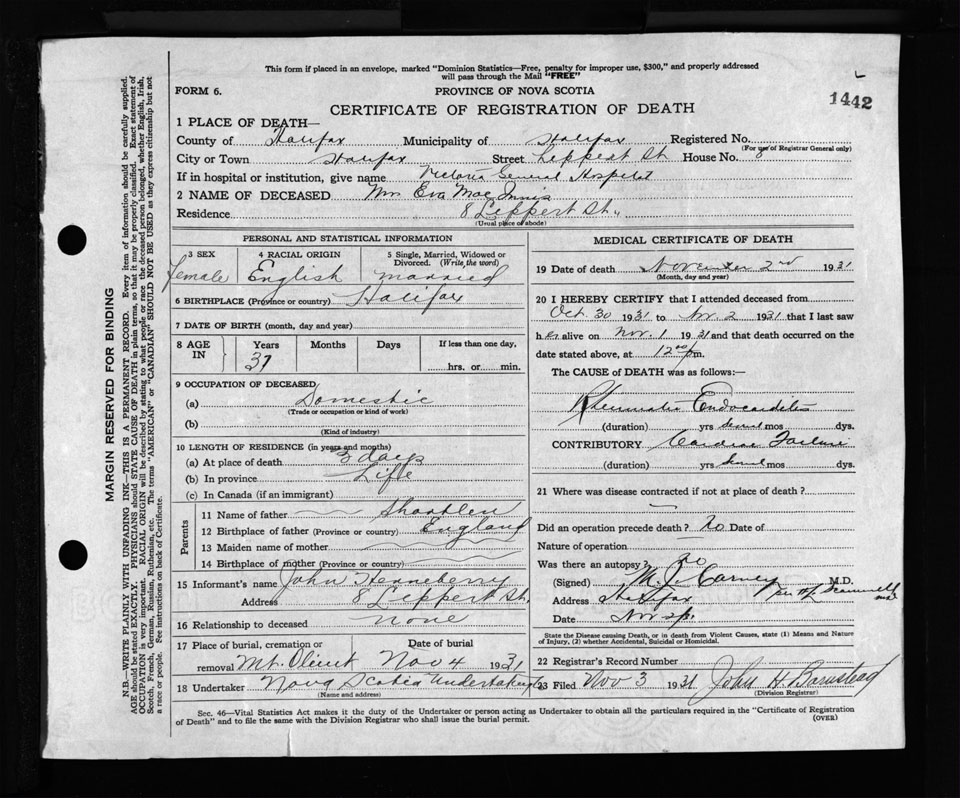 This form if placed in an envelope, marked "Dominion Statistics—Free, penalty for improper use, $300," and properly addressed
will pass through the Mail "FREE"
FORM 6.
PROVINCE OF NOVA SCOTIA
1442
CERTIFICATE OF REGISTRATION OF DEATH
1 PLACE OF DEATH—
County of Halifax Municipality of Halifax Registered No.
(For use of Registrar General only)
City or Town Halifax Street Leppert St. House No. 8
If in hospital or institution, give name Victoria General Hospital
2 NAME OF DECEASED Mrs Eva Mac Innis
Residence 8 Leppert St.,
(Usual place of abode)
PERSONAL AND STATISTICAL INFORMATION
3 SEX 4 RACIAL ORIGIN 5 Single, Married, Widowed or
Divorced. (Write the word)
female English married
6 BIRTHPLACE (Province or country) Halifax
7 DATE OF BIRTH (month, day and year)
8 AGE IN Years Months Days If less than one day,
37 hrs. or min.
9 OCCUPATION OF DECEASED
(a) Domestic
(Trade or occupation or kind of work)
(b)
(Kind of industry)
10 LENGTH OF RESIDENCE (in years and months)
(a) At place of death 3 days
(b) In province Life
(c) In Canada (if an immigrant)
Parents
11 Name of father
12 Birthplace of father (Province or country) England
13 Maiden name of mother
14 Birthplace of mother (Province or country)
15 Informant's name John Henneberry
Address 8 Leppert St.
16 Relationship to deceased none
17 Place of burial, cremation or Date of burial
removal Mt. Olivet Nov 4 1931
18 Undertaker Nova Scotia Undertaking Co
(Name and address)
MEDICAL CERTIFICATE OF DEATH
19 Date of death November 2nd 1931
(Month, day and year)
20 I HEREBY CERTIFY that I attended deceased from
Oct 30 1931 to Nov. 2 1931 that I last saw
her alive on Nov. 1 1931 and that death occurred on the
date stated above, at 12 00 pm.
The CAUSE of DEATH was as follows:—
Rheumatic Endocarditis
(duration) yrs several mos dys.
CONTRIBUTORY Cardiac Failure
(duration) yrs several mos dys.
21 Where was disease contracted if not at place of death?
Did an operation precede death? No Date of
Nature of operation
Was there an autopsy? no
(Signed) M. J. Carney M.D.
Address Halifax
Date
State the Disease causing Death, or in death from Violent Causes, state (1) Means and Nature
of Injury, (2) whether Accidental, Suicidal or Homicidal.
22 Registrar's Record Number
23 Filed Nov 3 1931 John H. Barnstead
(Division Registrar)
Sec. 46—Vital Statistics Act makes it the duty of the Undertaker or person acting as Undertaker to obtain all the particulars required in the "Certificate of Registration
of Death" and to file the same with the Division Registrar who shall issue the burial permit. (OVER)
MARGIN RESERVED FOR BINDING
N.B.—WRITE PLAINLY WITH UNFADING INK—THIS IS A PERMANENT RECORD. Every item of information should be carefully supplied.
AGE should be stated EXACTLY. PHYSICIANS should STATE CAUSE OF DEATH in plain terms, so that it may be properly classified. Exact statement of
OCCUPATION is very important. RACIAL ORIGIN will be described by stating to what people or race the deceased person belonged, whether English, Irish,
Scotch, French, German, Russian, Ruthenian, etc. The terms "AMERICAN" or "CANADIAN" SHOULD NOT BE USED as they express citizenship but not
a race or people. See instructions on back of Certificate.